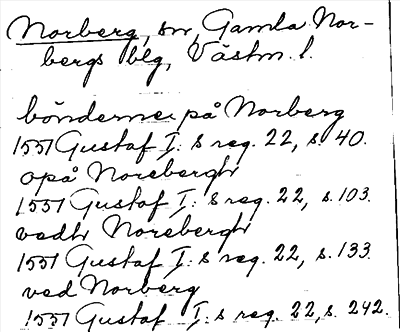 Norberg, sn, Gamla Nor-
bergs blg, Västm. l.
bönderne på Norberg
1551 Gustaf I:s reg. 22, s. 40.
opå Norebergh
1551 Gustaf I:s reg. 22, s. 103.
vedh Norebergh
1551 Gustaf I:s reg. 22, s. 133.
ved Norberg
1551 Gustaf I:s reg. 22, s. 242.